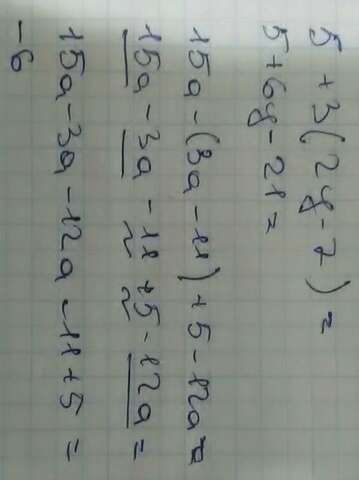 5 + 3(2y - 7) =
5 + 6y - 21 =
15a - (3a - 11) + 5 - 12a =
15a - 3a - 11 + 5 - 12a =
15a - 3a - 12a - 11 + 5 =
- 6